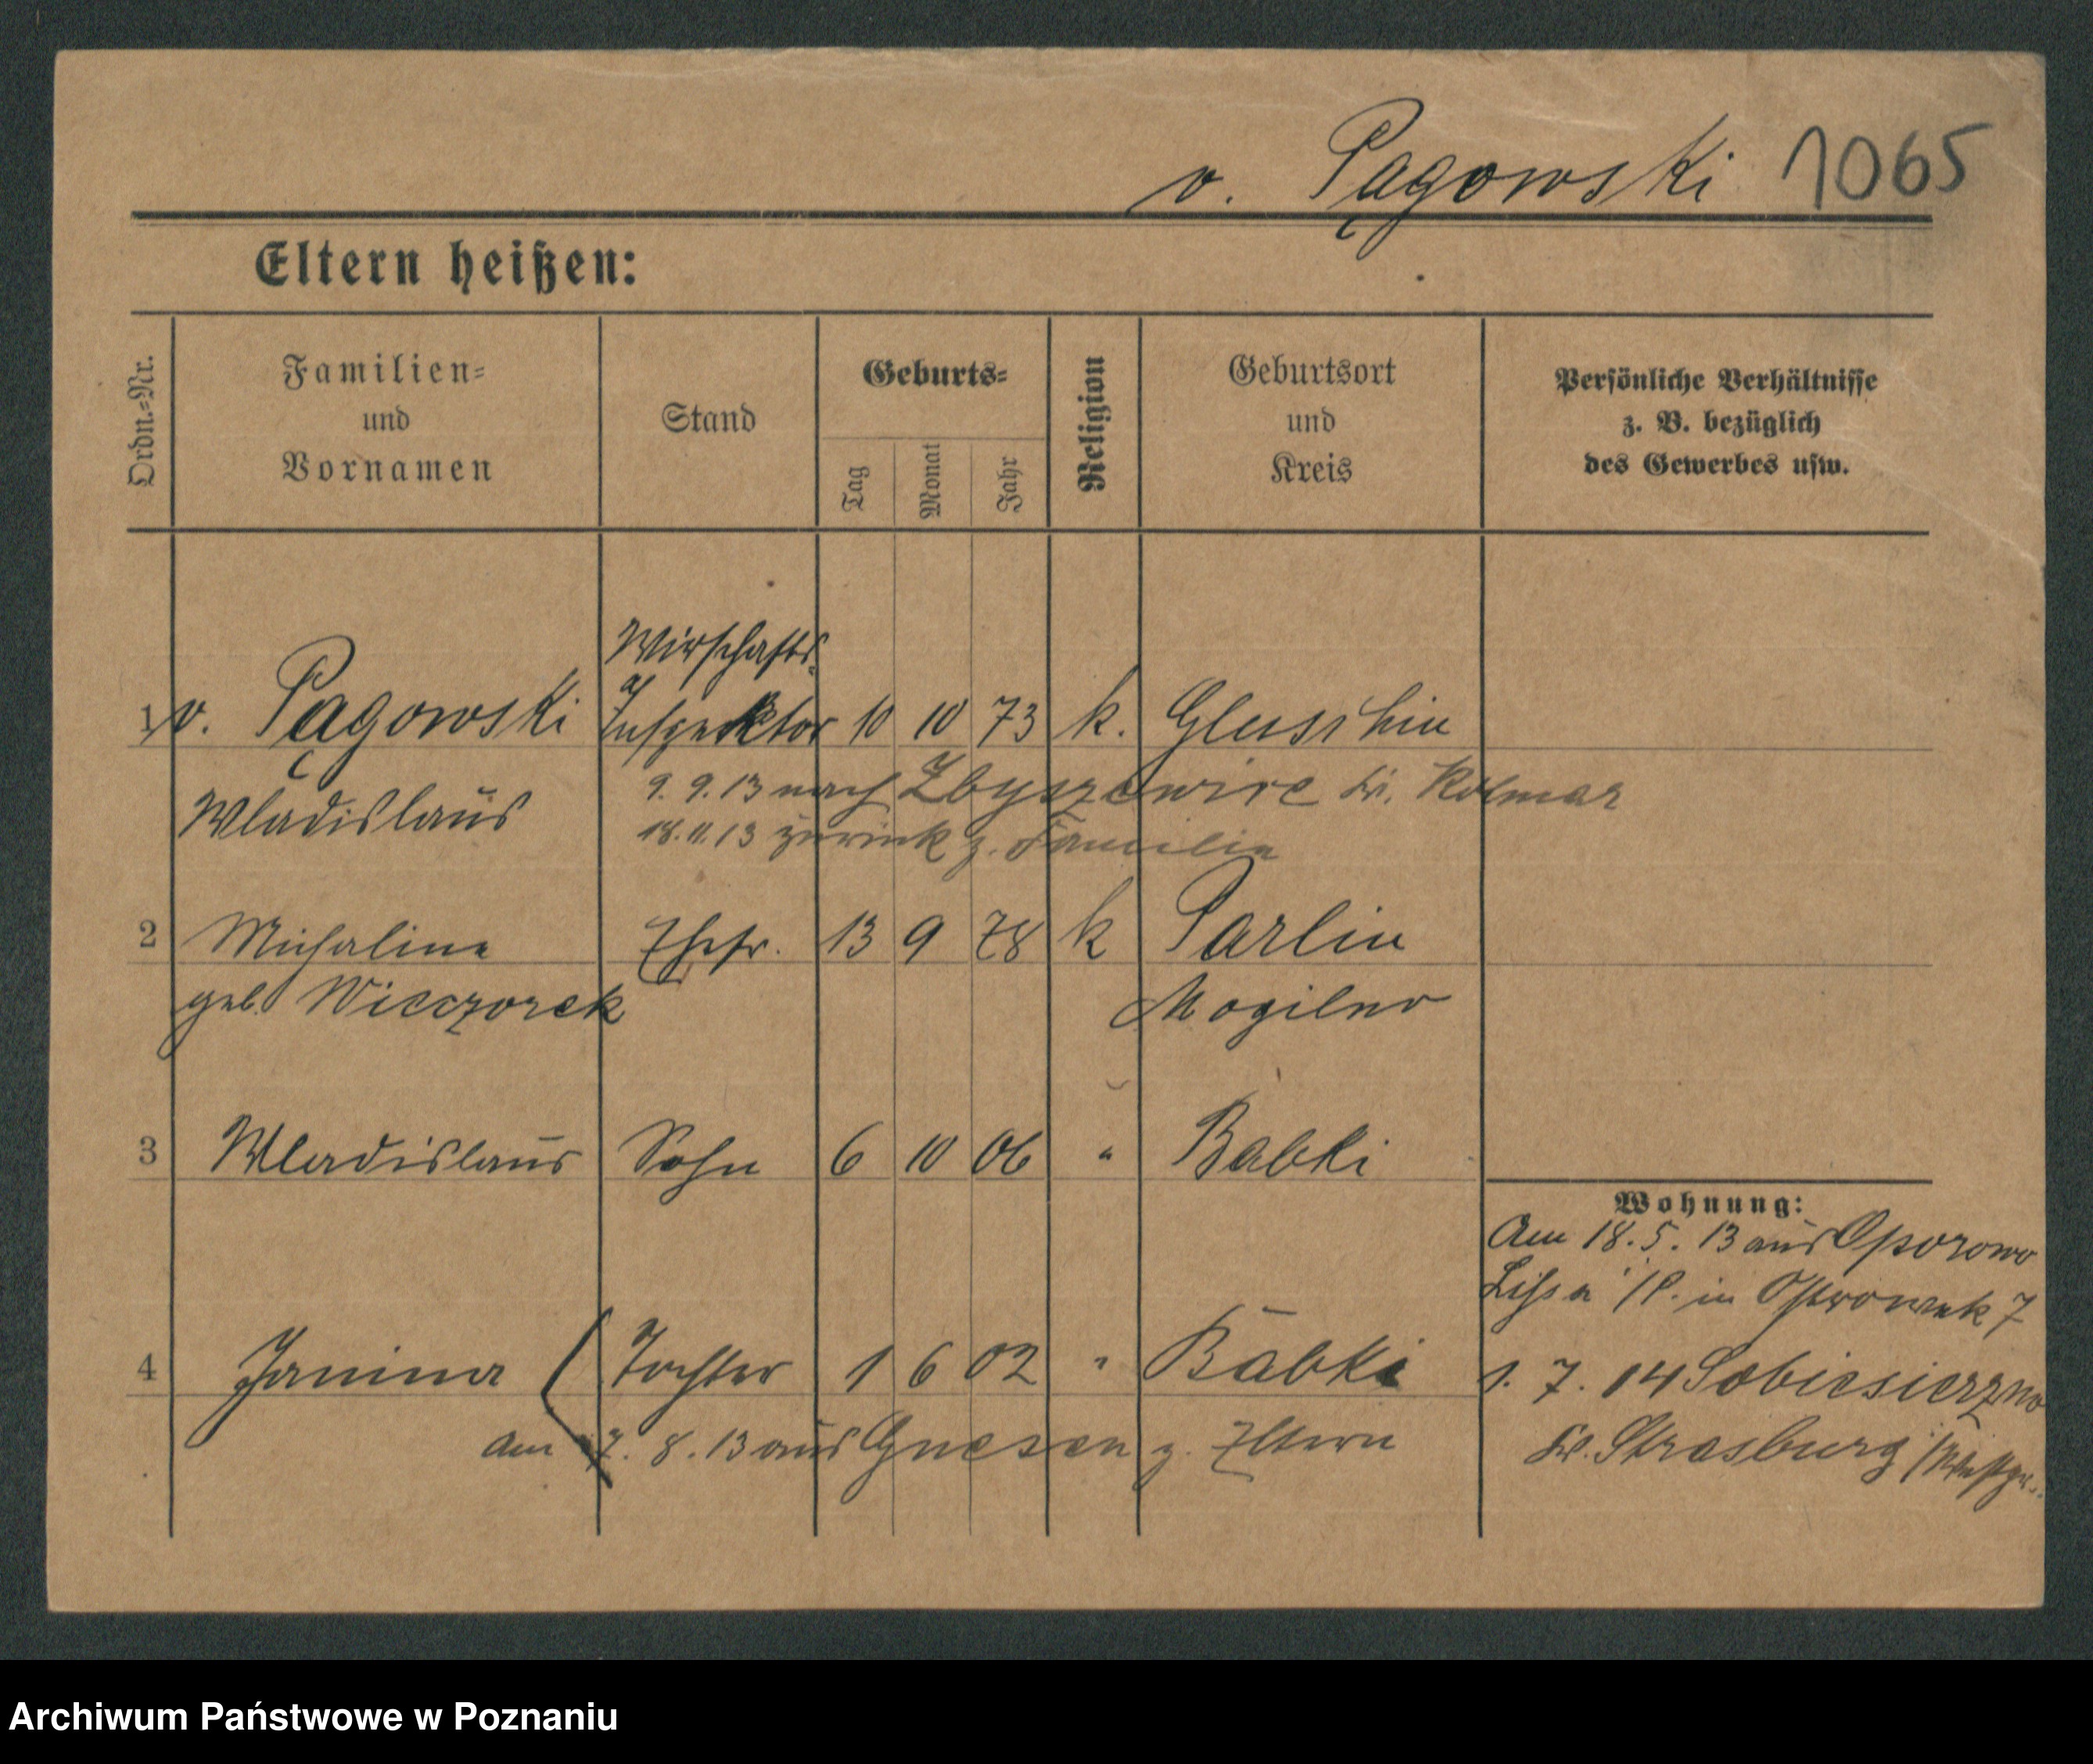 v. Pągowski 1065
Eltern heißen:
Ordn.-Nr.
Familien-
und
Vornamen
Stand
Geburts-
Tag
Monat
Jahr
Religion
Geburtsort
und
Kreis
Persönliche Verhältnisse
z. B. bezüglich
des Gewerbes usw.
Wirschafts-
1 v. Pągowski Inspektor 10 10 73 k. Gluschin
9. 9. 13 nach Kr. Kolmar
Wladislaus
18. 11. 13 zurück z. Familie
2 Michalina Ehefr. 13 9 78 k Parlin
geb. Wieczorek Mogilno
3 Wladislaus Sohn 6 10 06 " Babki
Wohnung:
Am 18. 5. 13 aus Oporowo
Lissa i/P. in Ostrowek 7
4 Janina Tochter 1 6 02 " Babki
1. 7. 14 Sobiesierzno
Am 7. 8. 13 aus Gnesen z. Eltern
Kr. Strasburg /Westpr.